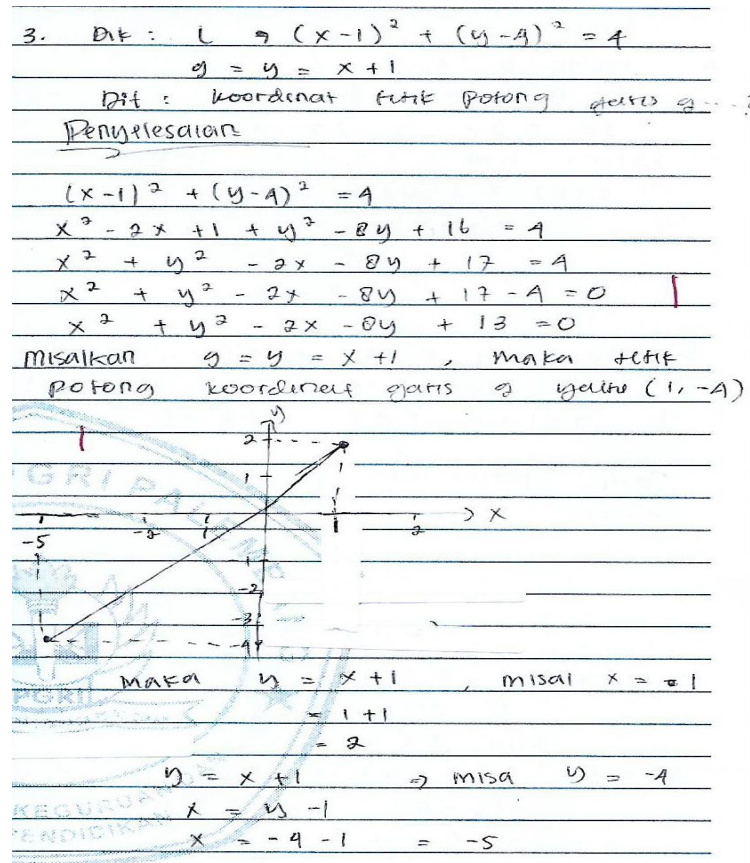 3. Dik : L → (x-1)² + (y-4)² = 4
g = y = x + 1
Dit : koordinat titik potong garis g ... ?
Penyelesaian
(x-1)² + (y-4)² = 4
x² - 2x + 1 + y² - 8y + 16 = 4
x² + y² - 2x - 8y + 17 = 4
x² + y² - 2x - 8y + 17 - 4 = 0
x² + y² - 2x - 8y + 13 = 0
misalkan g = y = x + 1 , maka titik
potong koordinat garis g yaitu (1, -4)
y
2
1
-5 -2 1 2 x
-1
-2
-3
-4
PGRI
Maka y = x + 1 , misal x = 1
= 1 + 1
= 2
y = x + 1 ⇒ misa y = -4
x = y - 1
x = -4 - 1 = -5
KEGURUAN DAN
PENDIDIKAN